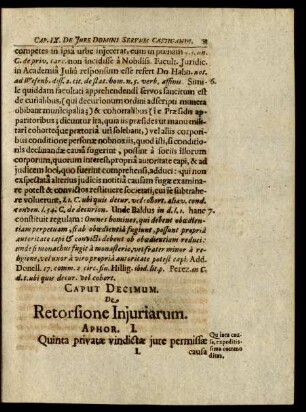 CAP. IX. DE JURE DOMINI SERVUM CASTIGANDI.
competens in ipsa urbe injecerat, eum in pœnam
C. de priv. carc. non incidisse à Nobiliss. Facult. Juridic.
in Academiâ Juliâ responsum esse refert Dn. Hahn. not.
ad Wesenb. diss. 2. tit. de stat. hom. n. 5. verb. affinis. Simile
quiddam facultati apprehendendi servos fauscitum est
de curialibus, (qui decurionum ordini adscripti munera
obibant municipalia) & cohortalibus (i.e. Præsidis apparitoribus;
dicuntur ita, quia iis præsides ut manu militari
cohorteque prætoriâ uti solebant,) vel alias corporibus
conditione personæ nobnoxiis, quod si, conditionis
declinandæ causâ fugerint, possint à sotiis illorum
corporum, quorum interest, propriâ autoritate capi, & ad
judicem loci, quo fuerint comprehensi, adduci: qui non
exspectatâ alterius judicis notitiâ causam fugæ examinare
potest & convictos restituere societati, cui se subtrahere
voluerunt. l. 1. C. ubi quis de cur. vel cohort. aliav. cond.
conven. l. 54. C. de decurion. Unde Baldus in d. l. 1. hanc
constituit regulam: Omnes homines, qui debent obedientiam
perpetuam, si ab obedientiâ fugiunt, possunt propriâ
autoritate capi & convicti debent ob obedientiam reduci:
unde si monachus fugit à monasterio, vel frater minor à religione,
vel uxor à viro propriâ autoritate potest capi. Add.
Donell. 17. comm. 2. circ. fin. Hillig. ibid. lit. p. Perez. in C.
d. t. ubi quis decur. vel cohort.
CAPUT DECIMUM.
De
Retorsione Injuriarum.
APHOR. I.
Quinta privatæ vindictæ jure permissæ
I. causa
6.
7
Qu inta cau-
sa, expeditis-
sima contume-
ditus,